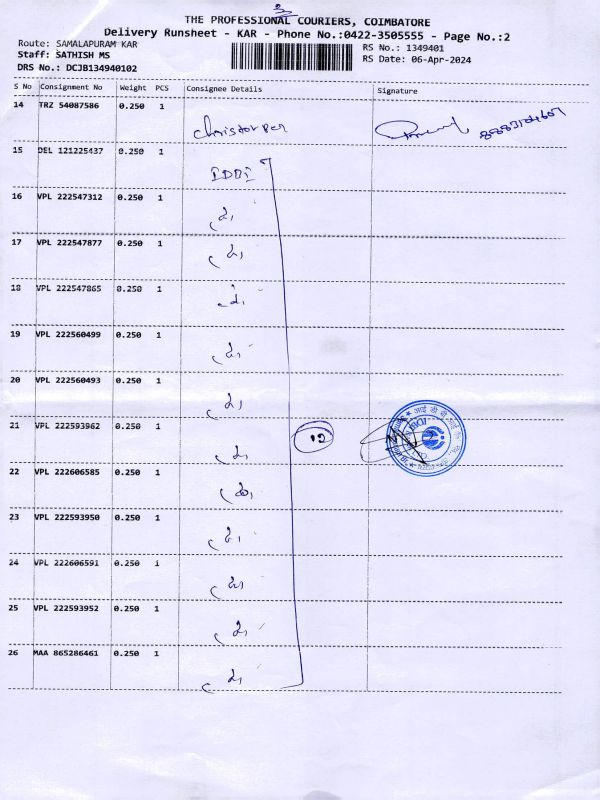 3
THE PROFESSIONAL COURIERS, COIMBATORE
Delivery Runsheet - KAR - Phone No.:0422-3505555 - Page No.:2
Route: SAMALAPURAM KAR
Staff: SATHISH MS
DRS No.: DCJB134940102
RS No.: 1349401
RS Date: 06-Apr-2024
S No Consignment No Weight PCS Consignee Details Signature
14 TRZ 54087586 0.250 1
Christopher
15 DEL 121225437 0.250 1
IDBI
16 VPL 222547312 0.250 1
17 VPL 222547877 0.250 1
18 VPL 222547865 0.250 1
19 VPL 222560499 0.250 1
20 VPL 222560493 0.250 1
21 VPL 222593962 0.250 1
12
22 VPL 222606585 0.250 1
23 VPL 222593950 0.250 1
24 VPL 222606591 0.250 1
25 VPL 222593952 0.250 1
26 MAA 865286461 0.250 1